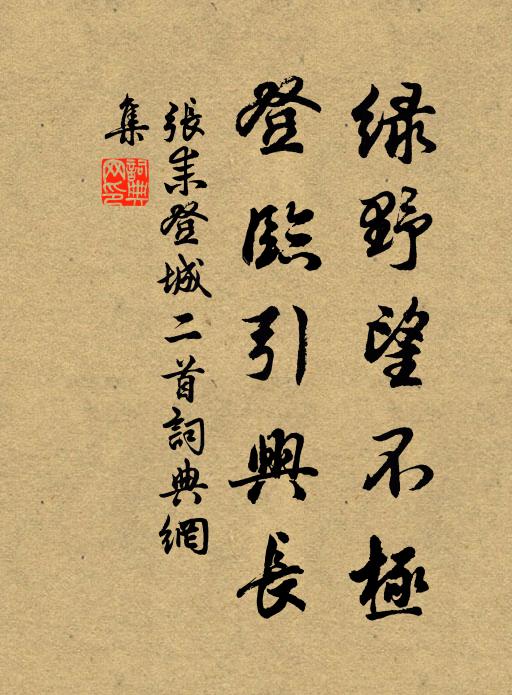 綠野望不極
登臨引興長
張耒登城二首詞典網
集
詞典網印